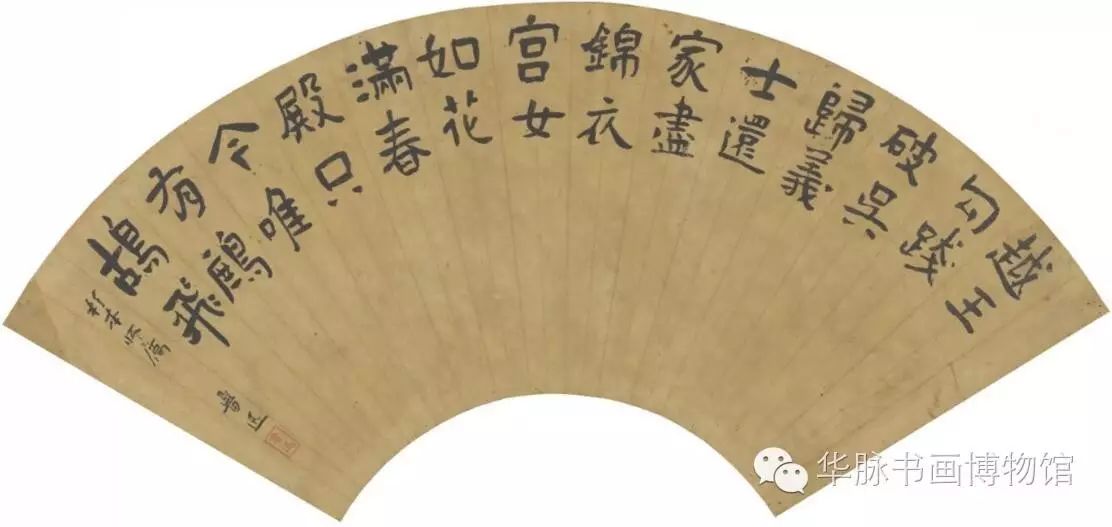 越王
勾踐
破吳
歸義
士還
家盡
錦衣
宮女
如花
滿春
殿只
今唯
有鷓
鴣飛
华脉书画博物馆